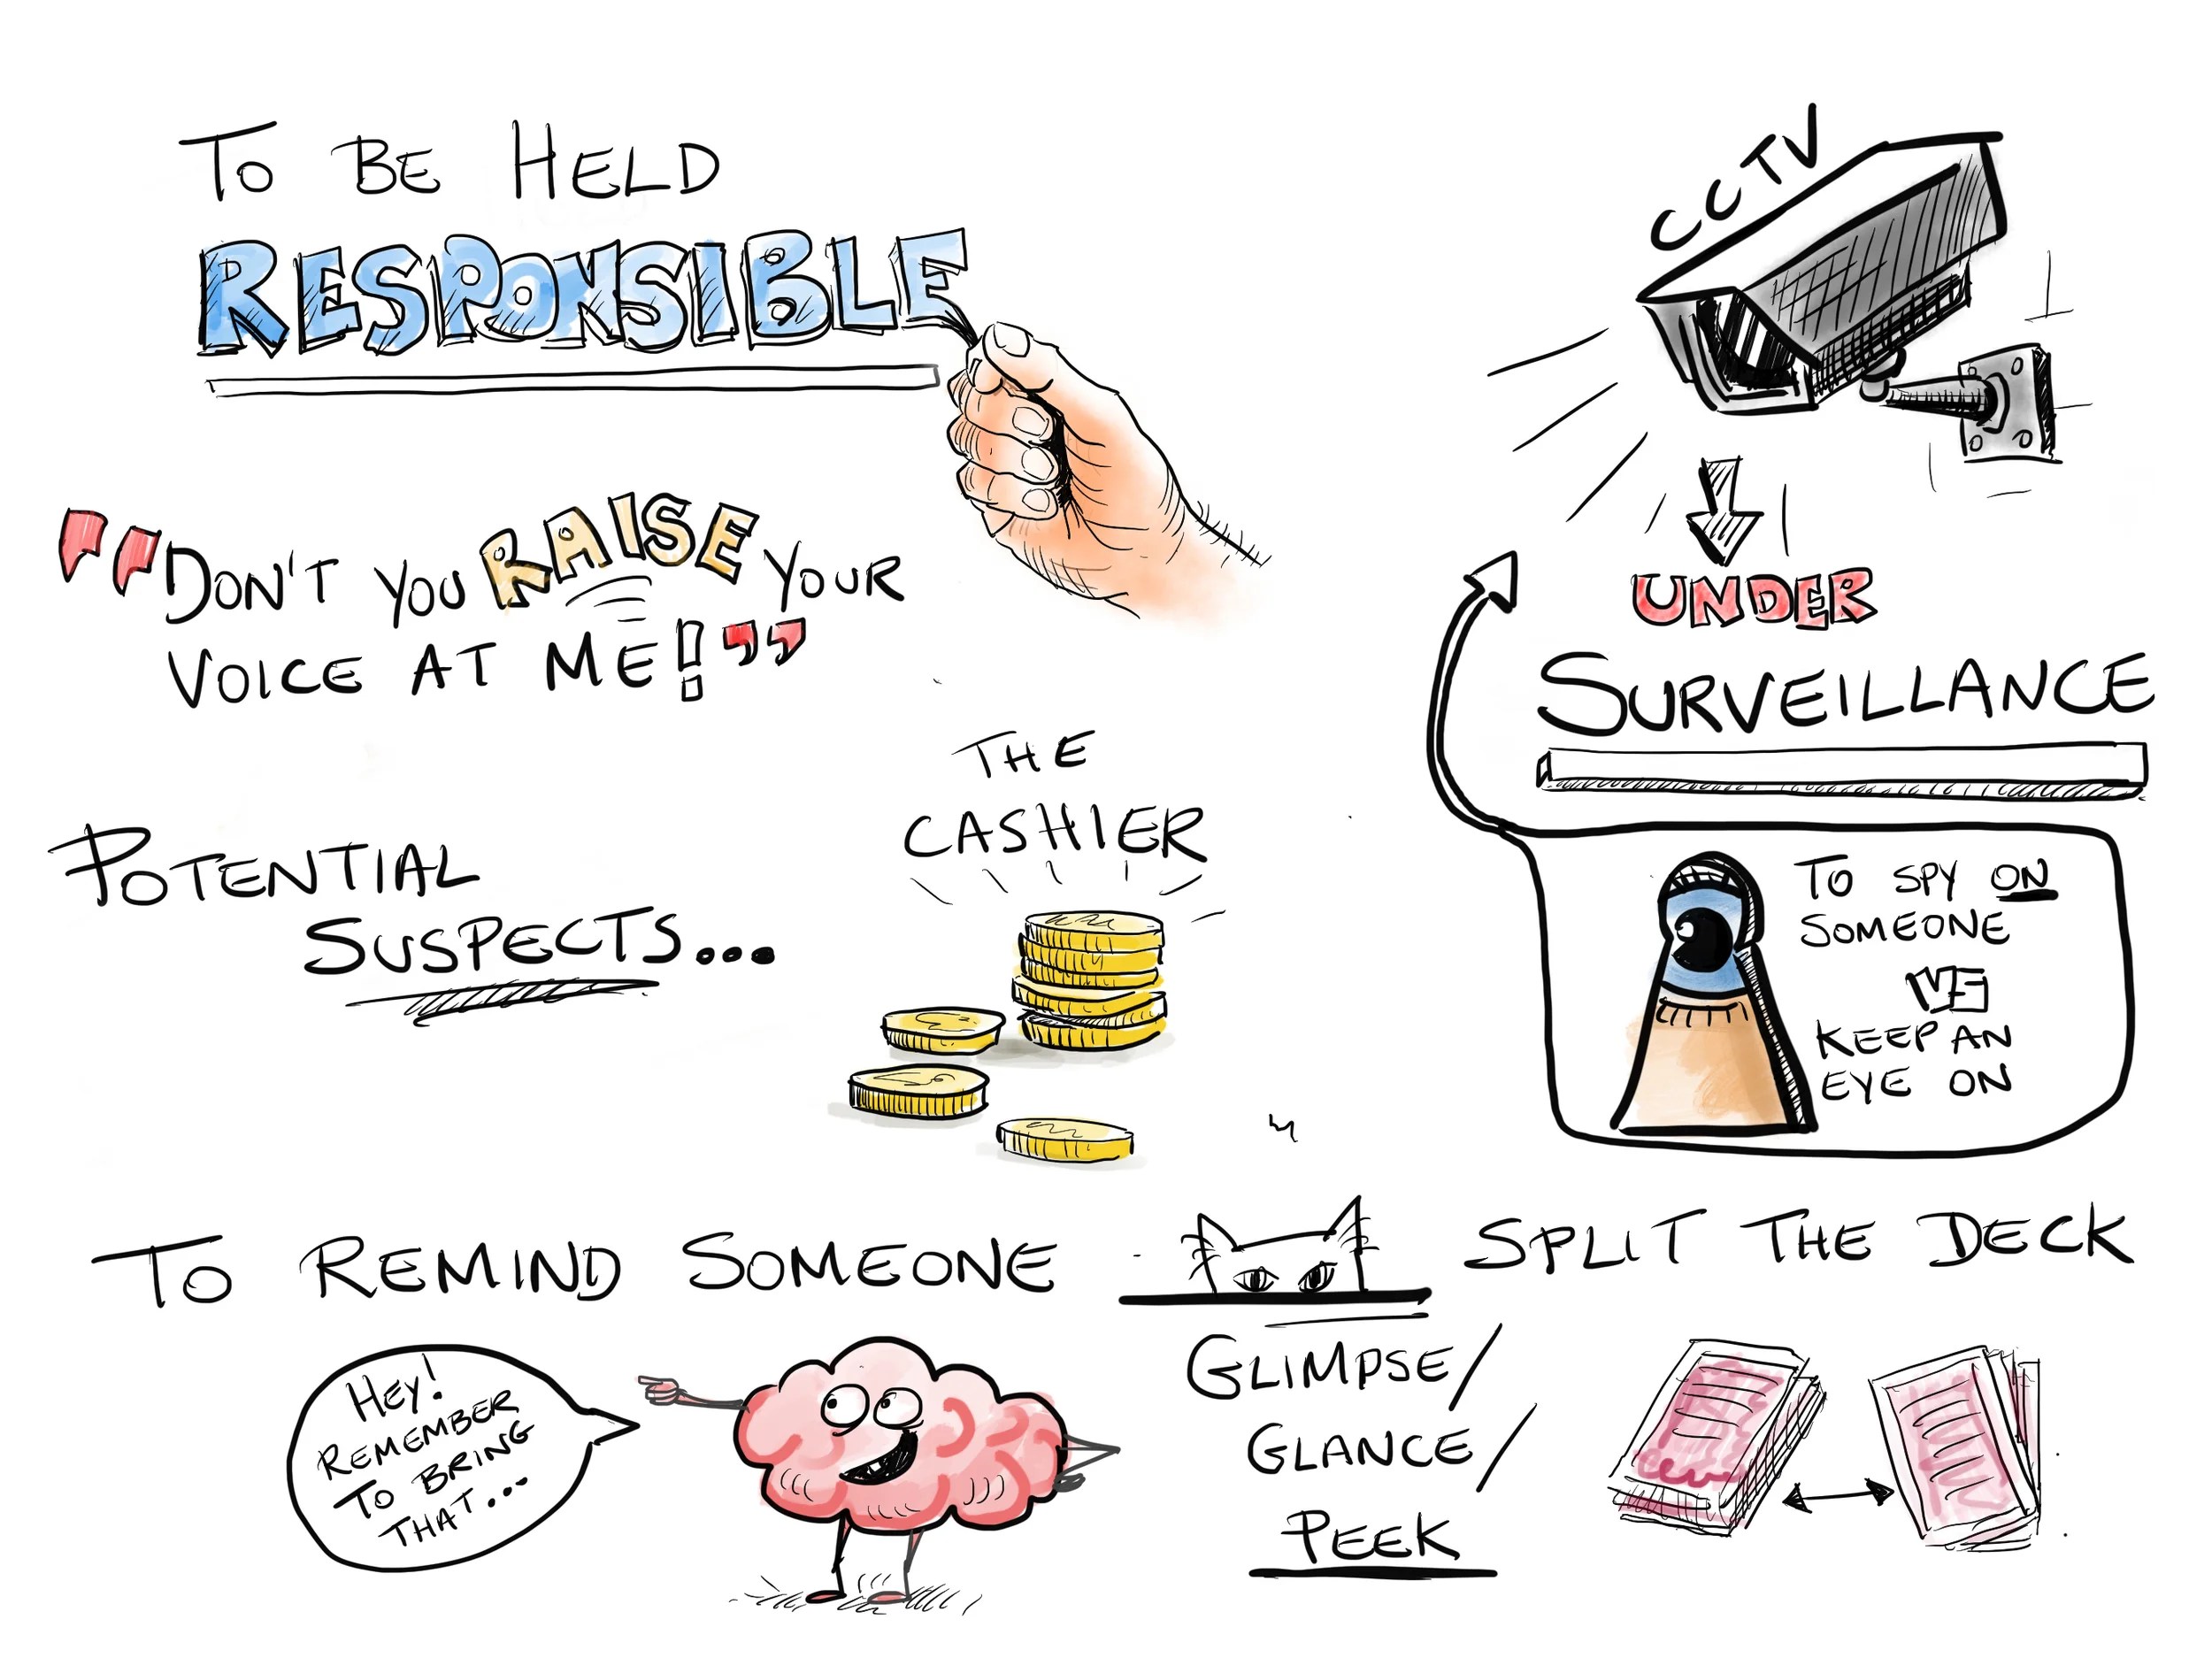 TO BE HELD
RESPONSIBLE
"DON'T YOU RAISE YOUR
VOICE AT ME!"
POTENTIAL
SUSPECTS...
THE
CASHIER
CCTV
UNDER
SURVEILLANCE
TO SPY ON
SOMEONE
VS
KEEP AN
EYE ON
TO REMIND SOMEONE
HEY!
REMEMBER
TO BRING
THAT...
GLIMPSE/
GLANCE/
PEEK
SPLIT THE DECK